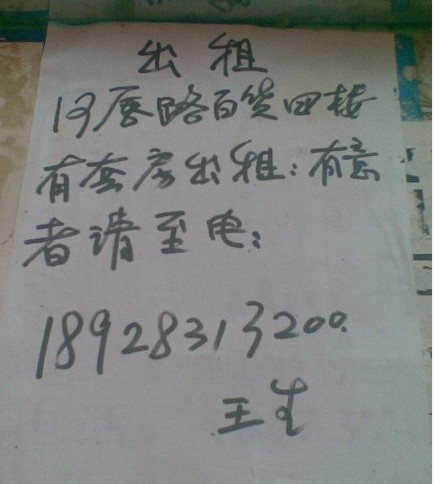 出租
河唇路百货四楼
有套房出租:有意
者请至电:
18928313200.
王生